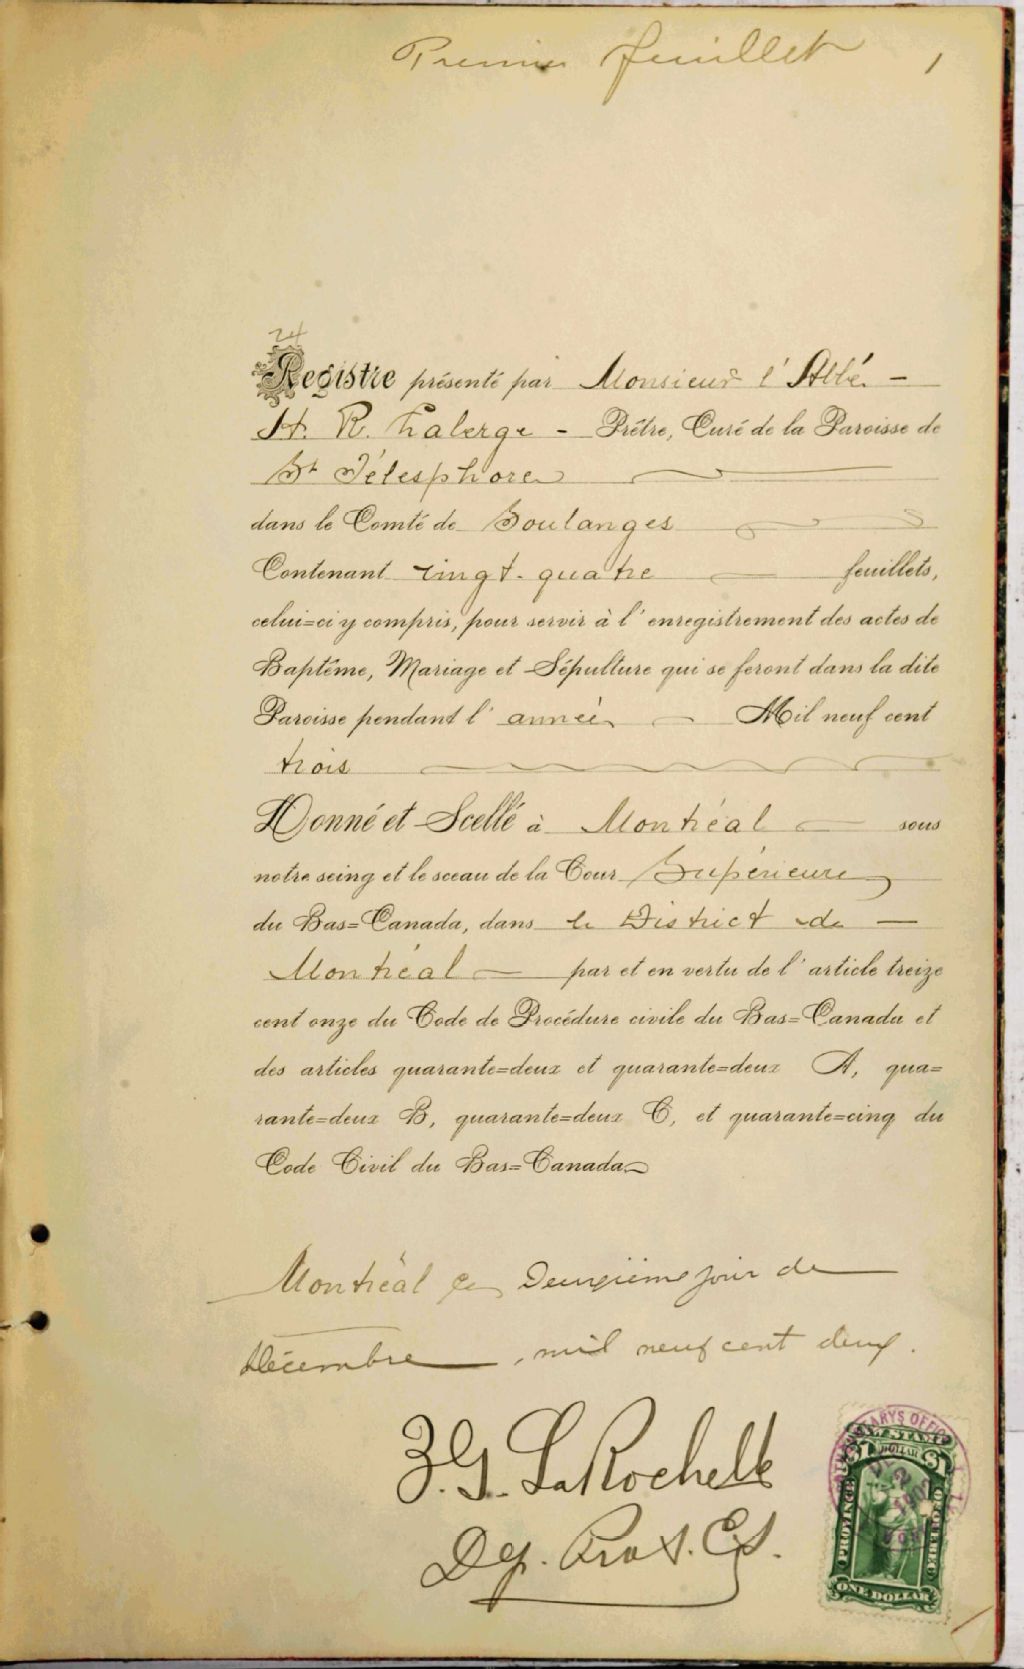 Premier feuillet 1
24
Registre présenté par Monsieur l'Abbé -
H. R. Laberge - Prêtre, Curé de la Paroisse de
St Télesphore
dans le Comté de Soulanges
Contenant vingt-quatre feuillets,
celui=ci y compris, pour servir à l'enregistrement des actes de
Baptême, Mariage et Sépulture qui se feront dans la dite
Paroisse pendant l'année Mil neuf cent
trois
Donné et Scellé à Montréal sous
notre seing et le sceau de la Cour Supérieure
du Bas=Canada, dans le District de
Montréal par et en vertu de l'article treize
cent onze du Code de Procédure civile du Bas=Canada et
des articles quarante=deux et quarante=deux A, qua=
rante=deux B, quarante=deux C, et quarante=cinq du
Code Civil du Bas=Canada
Montréal ce Deuxième jour de
Décembre, mil neuf cent deux.
LaRochelle
Dep. Prot. C.S.
LAW STAMP
$1 DOLLAR $1
PROVINCE OF QUEBEC
ONE DOLLAR
DE 2 1902